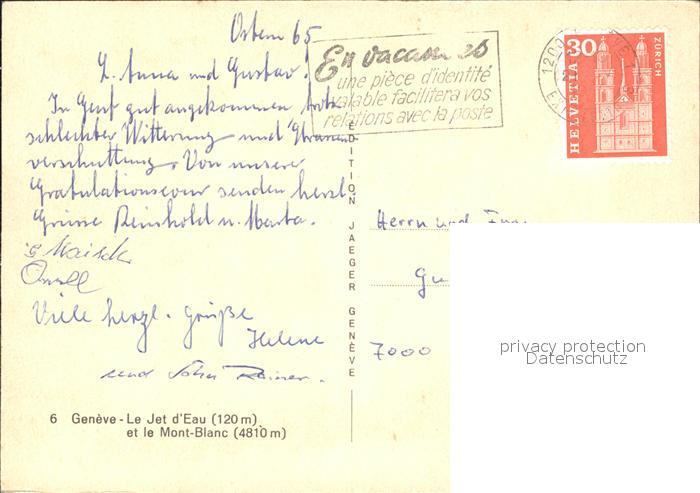 Ostern 65
L. Anna und Gustav!
In Genf gut angekommen trotz
schlechter Witterung und Strassen
verschüttung. Von unserer
Gratulationscour senden herzl.
Grüsse Reinhold u. Marta.
Viele herzl. Grüße
Helene
und Sohn Rainer.
6 Genève - Le Jet d'Eau (120 m)
et le Mont-Blanc (4810 m)
EDITION JAEGER GENÈVE
En vacances
une pièce d'identité
valable facilitera vos
relations avec la poste
30
HELVETIA
ZÜRICH
Herrn und Frau
Gu
7000
privacy protection
Datenschutz